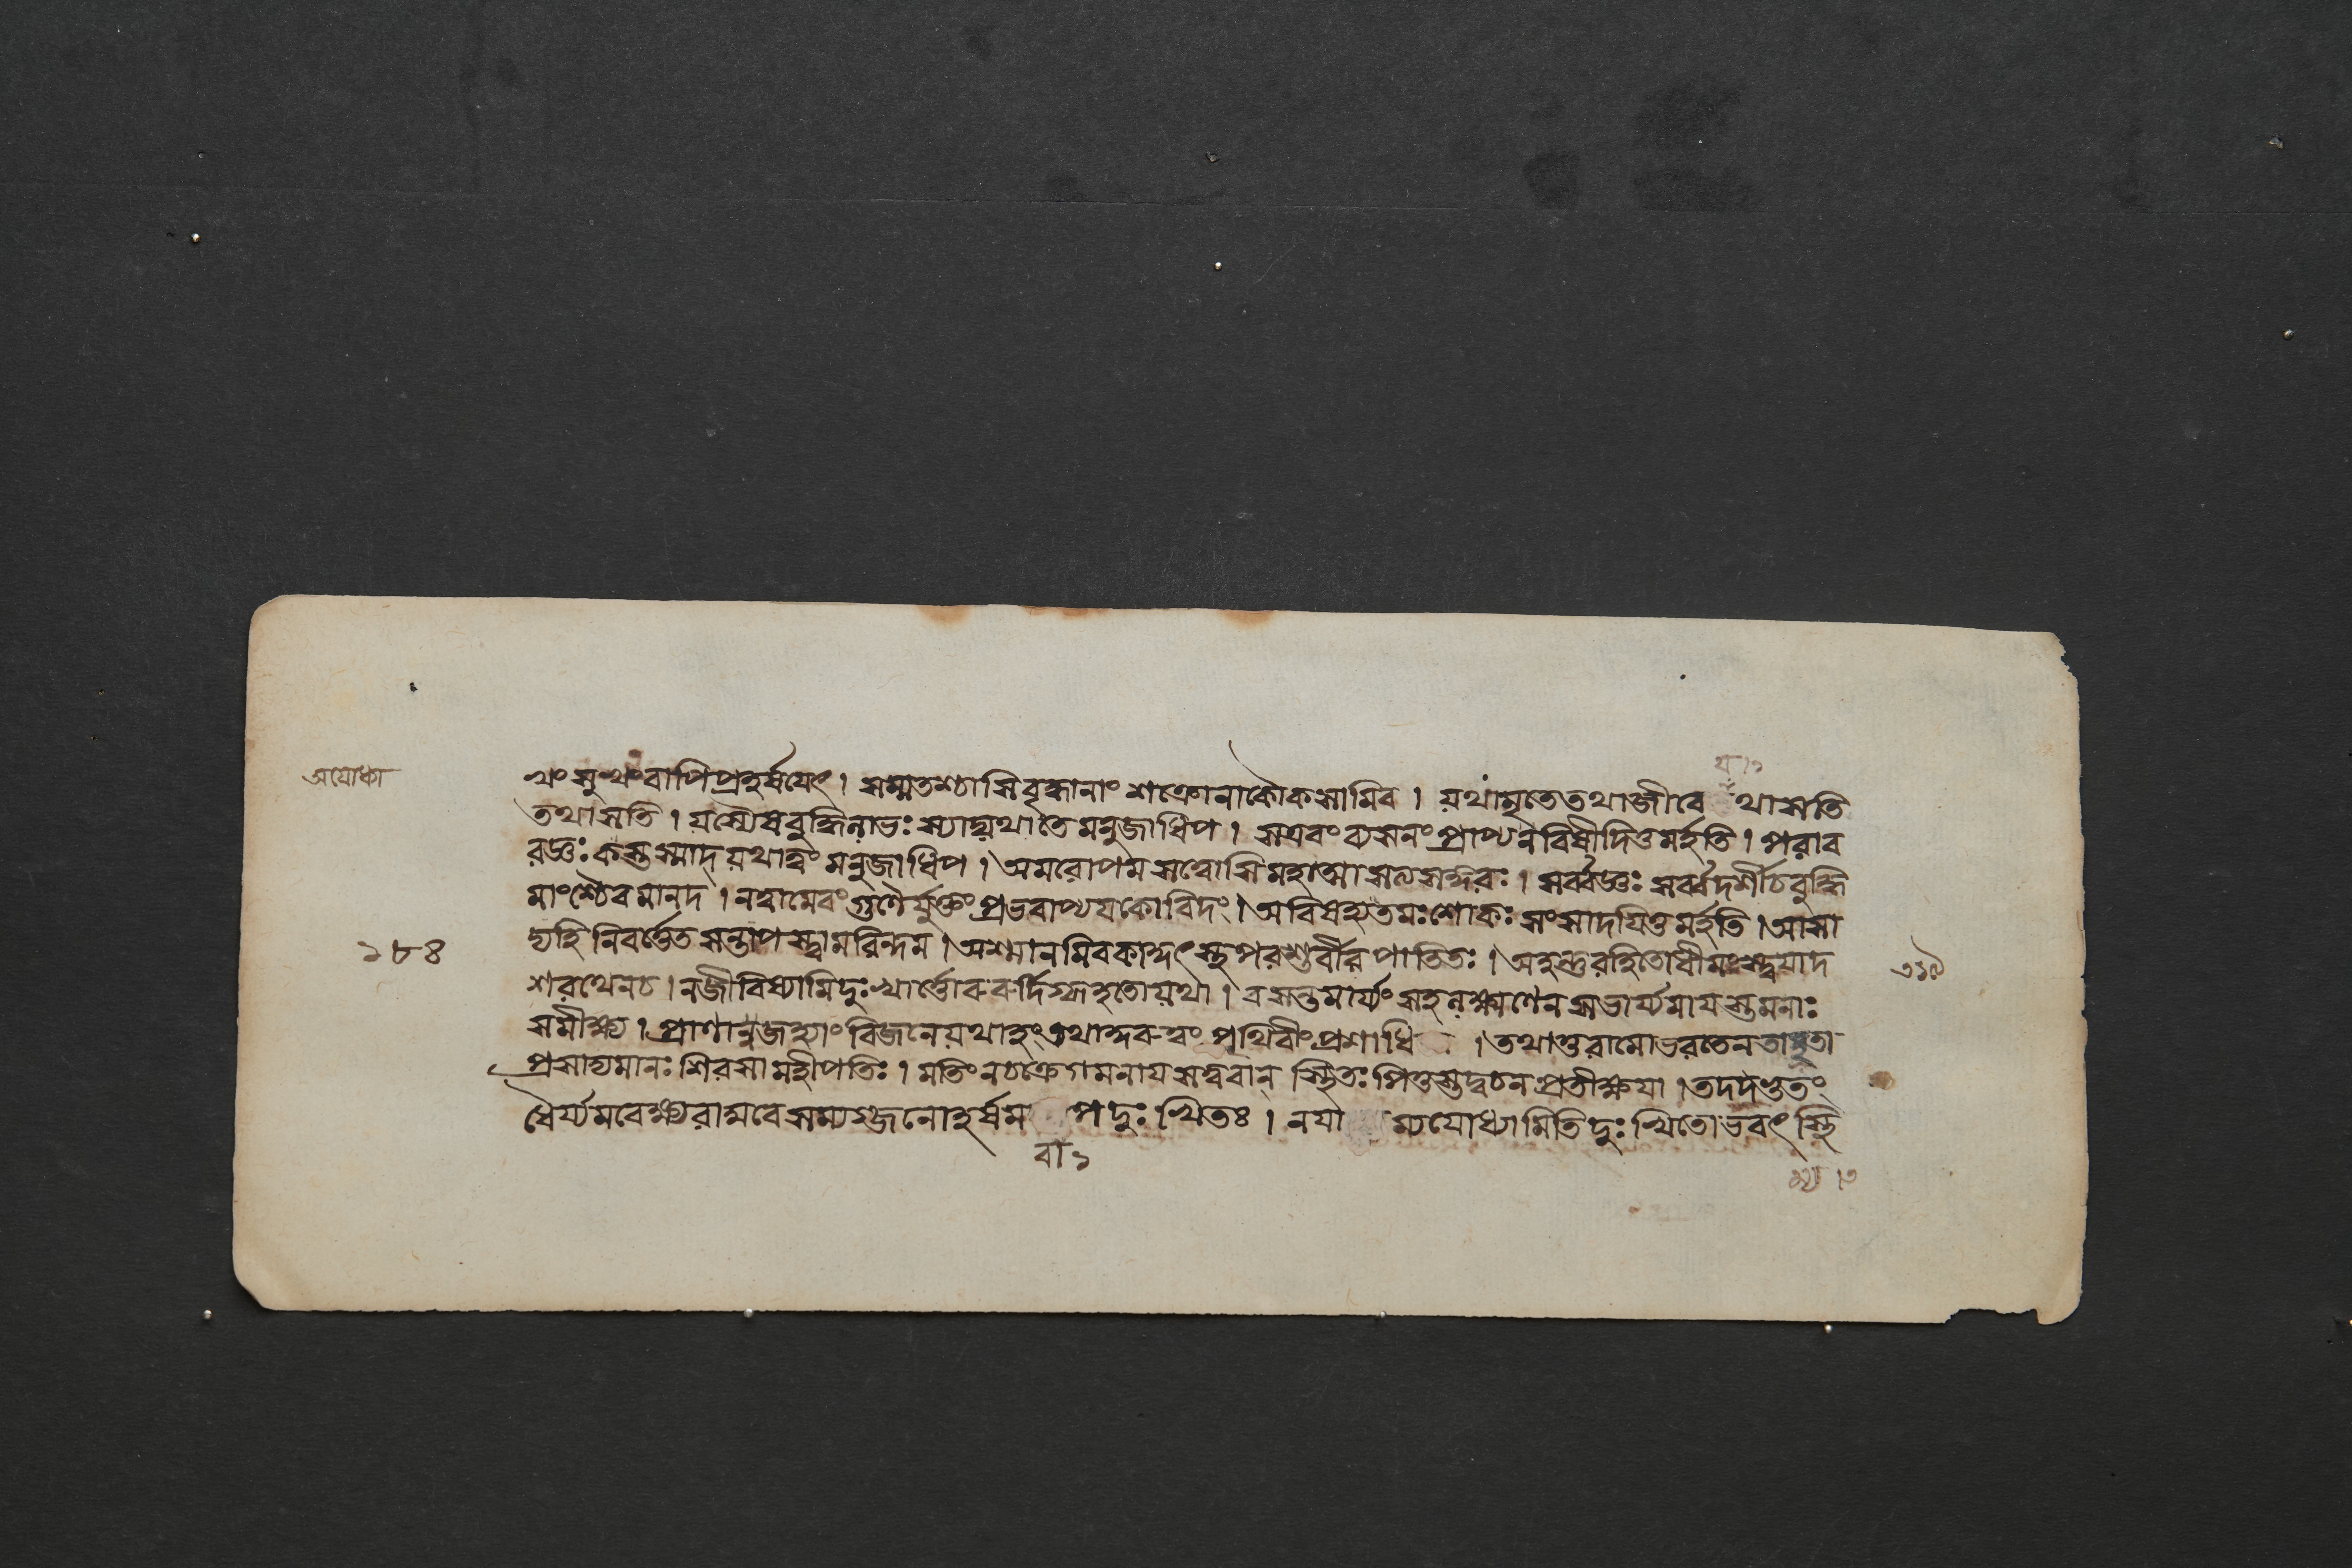 অযোধ্যা
খং সুখংবাপিপ্রহর্ষয়েৎ। সম্মতশ্চাসিবৃদ্ধানাং শক্রোনাকৌকসামিব। যথামৃতেতথাজীবে থাসতি
তথাসতি। যস্যৈষবুদ্ধিলাভঃ স্যাদ্যথাতে মনুজাধিপ। সএবং ব্যসনং প্রাপ্য নবিষীদিতুমর্হতি। পরাব
রজ্ঞঃ কস্তস্মাদ্ যথাত্বং মনুজাধিপ। অমরোপমসত্ত্বোসিমহাত্মাসত্যসঙ্গরঃ। সর্ব্বজ্ঞঃ সর্ব্বদর্শীচবুদ্ধি
মাংশ্চৈবমানদ। নত্বামেবংগুণৈর্যুক্তং প্রভবাপ্যয়কোবিদং। অবিষহ্যতমঃশোকঃ সংসাদয়িতুমর্হতি। আসা
দ্যহি নিবর্ত্তেত সন্তাপস্ত্বামরিন্দম। অশ্মানমিবকাঙ্গৎস্তুপরশুর্বীর পাতিতঃ। অহন্তুরহিতোধীমংস্ত্বয়াদ
১৮৪
শরথেনচ। নজীবিষ্যামিদুঃখার্ত্তোরুরুর্দিগ্ধাহতোযথা। বসন্তমার্য্যং সহলক্ষ্মণেন সভার্য্যমায়স্তমনাঃ
সমীক্ষ্য। প্রাণান্নজহ্যাং বিজনেযথাহং তথাঙ্গরুত্বং পৃথিবীং প্রশাধি। তথাতুরামোভরতেনতাম্যতা
প্রসাদ্যমানঃ শিরসামহীপতিঃ। মতিং নচক্রেগমনায়সত্ত্ববান্ স্থিতঃ পিতুস্তদ্বচনপ্রতীক্ষয়া। তদদ্ভুতং
ধৈর্য্যমবেক্ষ্যরাঘবে সম্যগ্জনোহর্ষম পদুঃখিতঃ। নযা ম্যযোধ্যামিতিদুঃখিতোভবৎ স্থি
বা ১